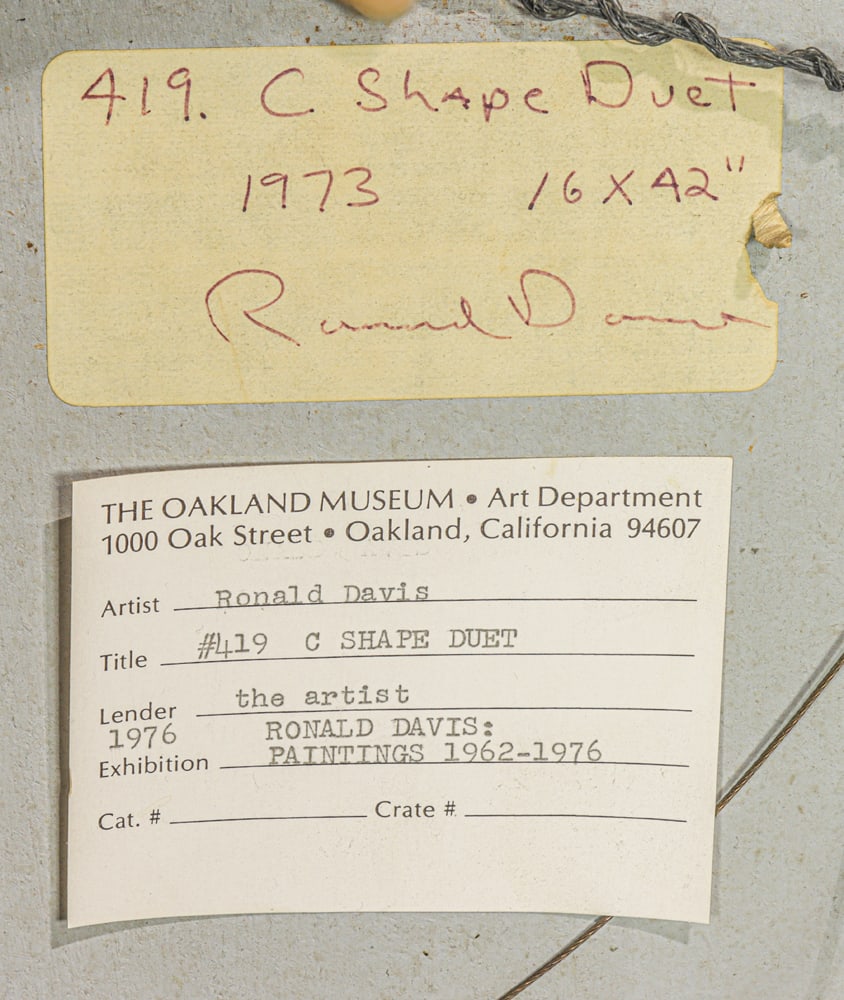 419. C Shape Duet
1973 16 X 42"
Ronald Davis
THE OAKLAND MUSEUM • Art Department
1000 Oak Street • Oakland, California 94607
Artist Ronald Davis
Title #419 C SHAPE DUET
Lender the artist
1976 RONALD DAVIS:
Exhibition PAINTINGS 1962-1976
Cat. # Crate #